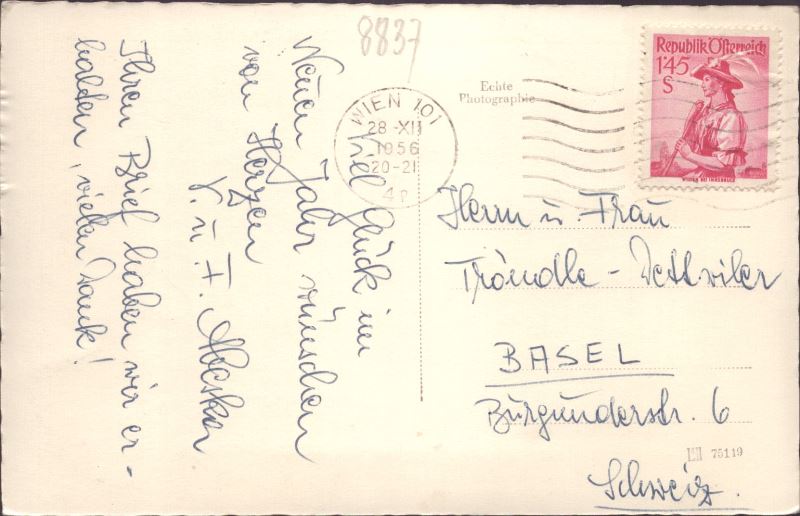 8837
Viel Glück im
Neuen Jahr wünschen
von Herzen
V. u. F.
Ihren Brief haben wir er-
halten, vielen Dank!
Echte
Photographie
WIEN 101
28-XII
1956
20-21
Republik Österreich
1'45
S
Herrn u. Frau
Tröndle - Dettwiler
BASEL
Burgunderstr. 6
75119
Schweiz.